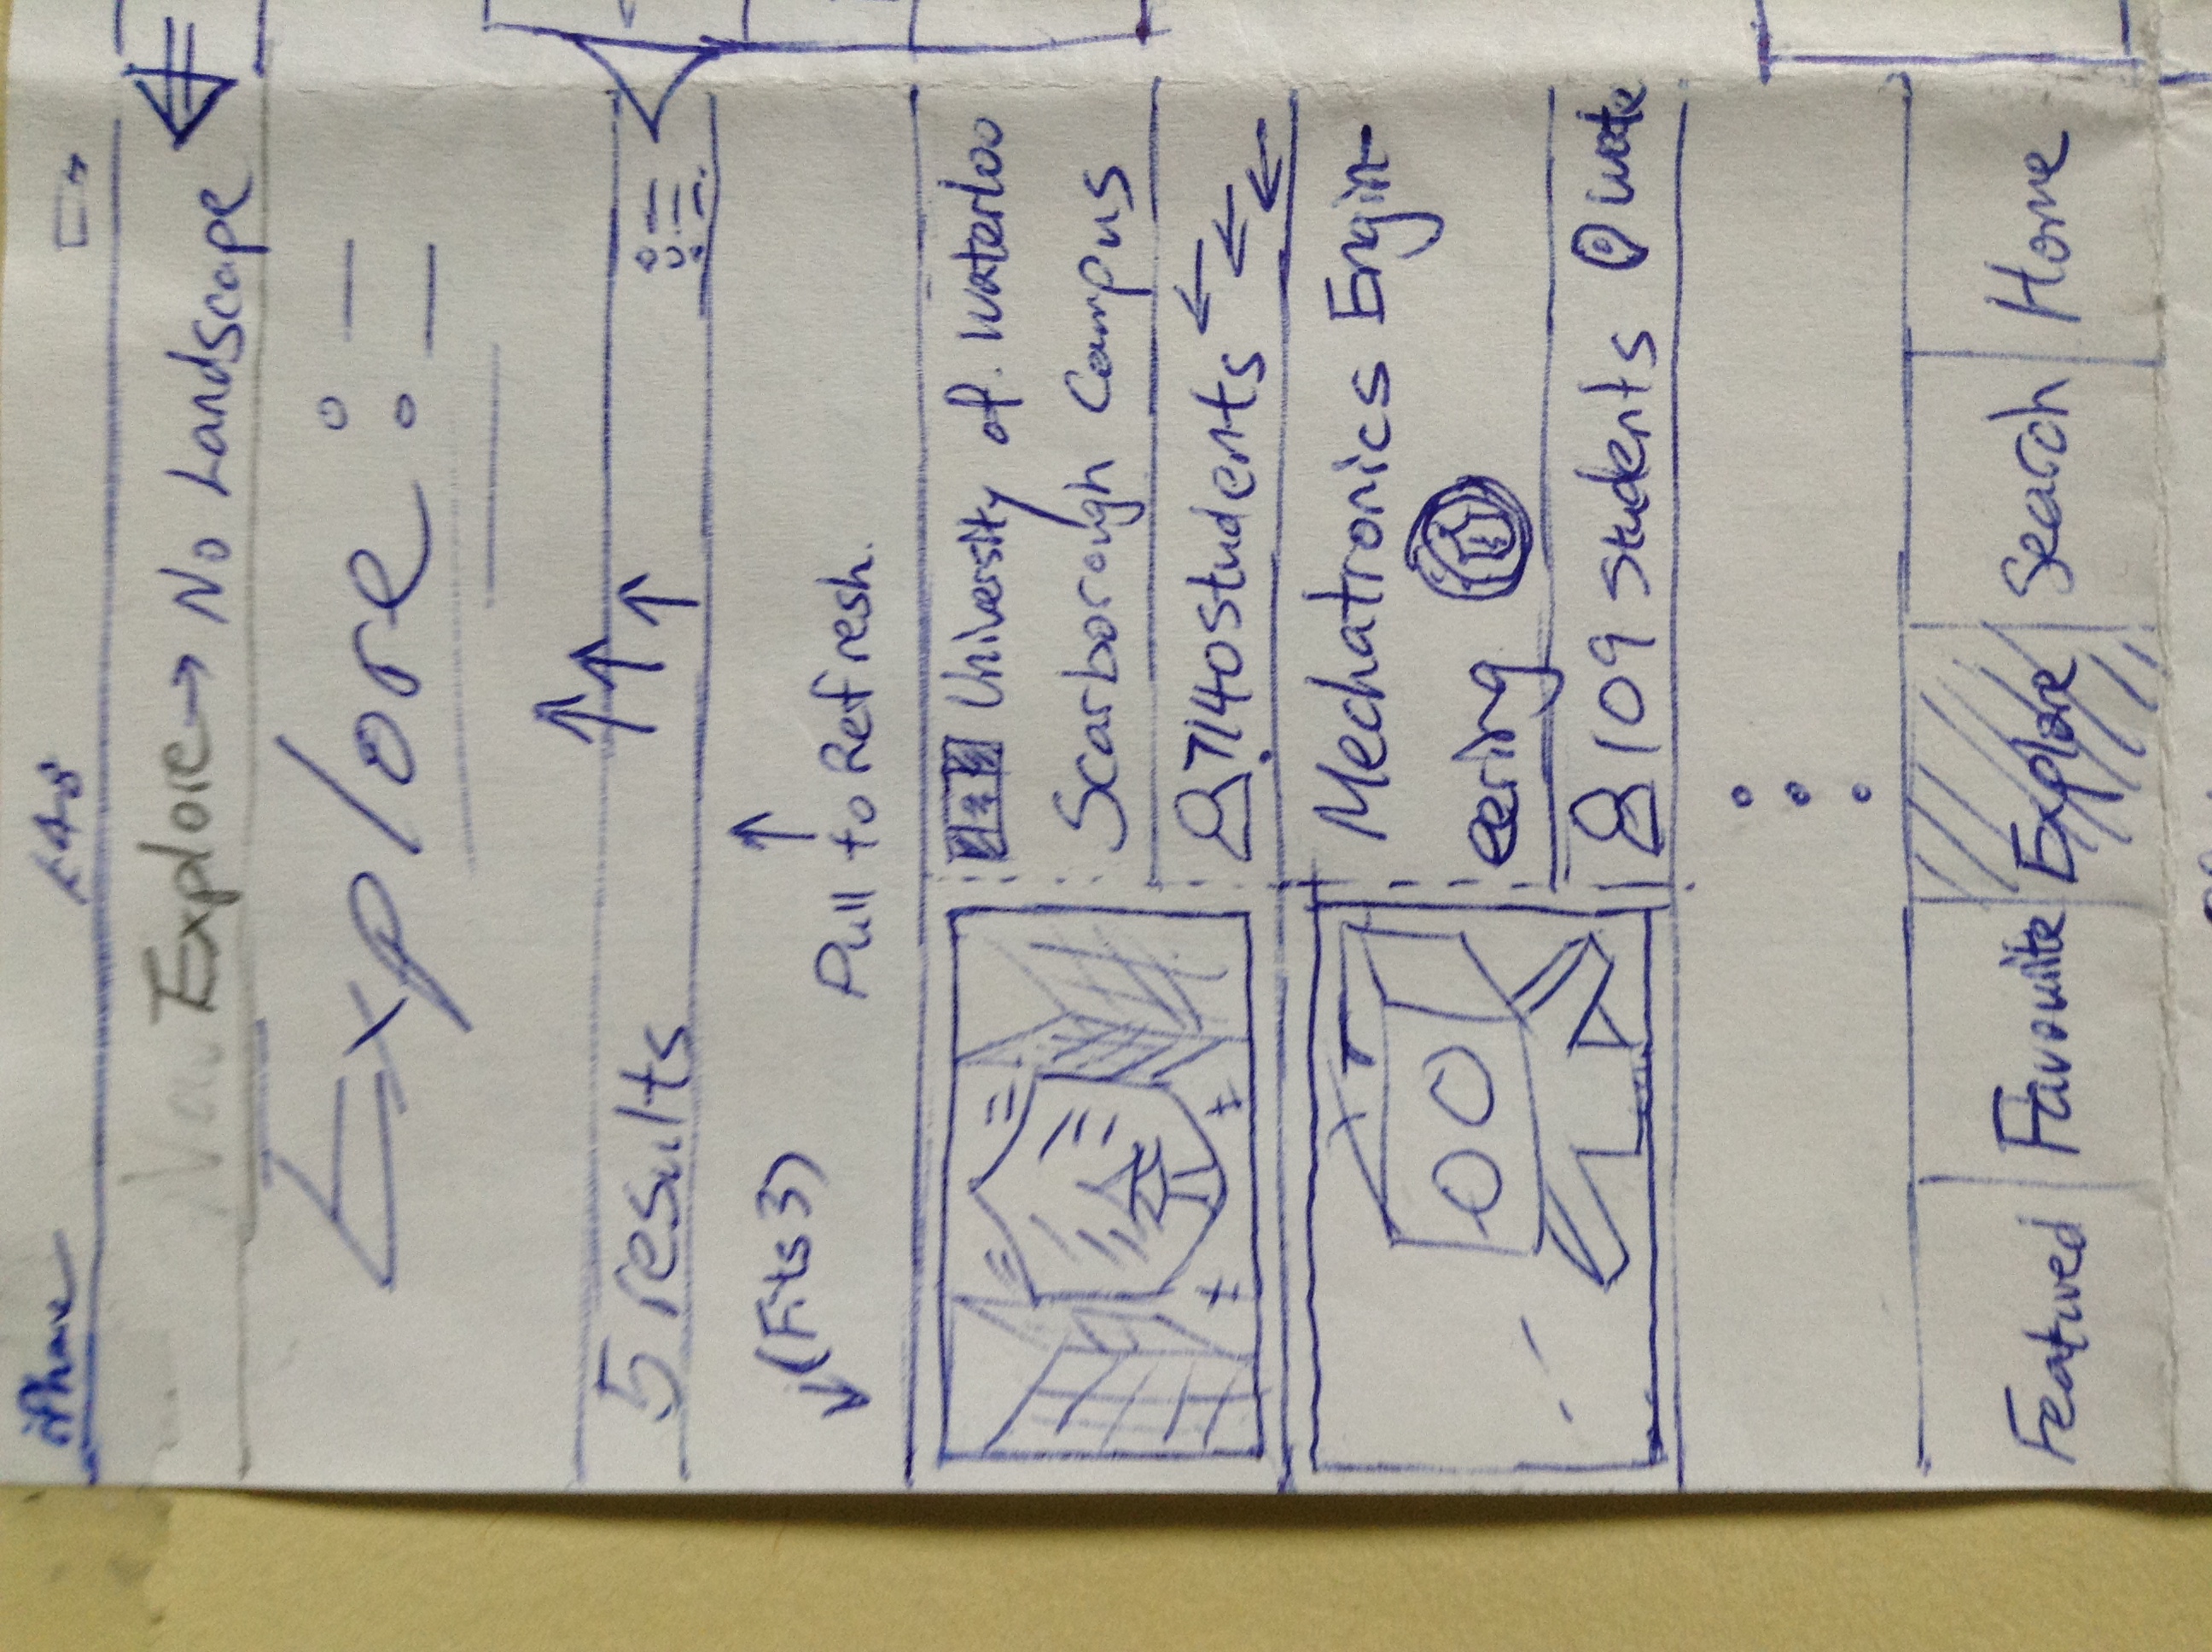 iPhone
Explore → No Landscape
Explore :
5 results
(Fits 3)
Pull to Refresh.
University of. Waterloo
Scarborough Campus
7140 students
Mechatronics Engin-
eering
109 students wate
Featured Favourite Explore Search Home